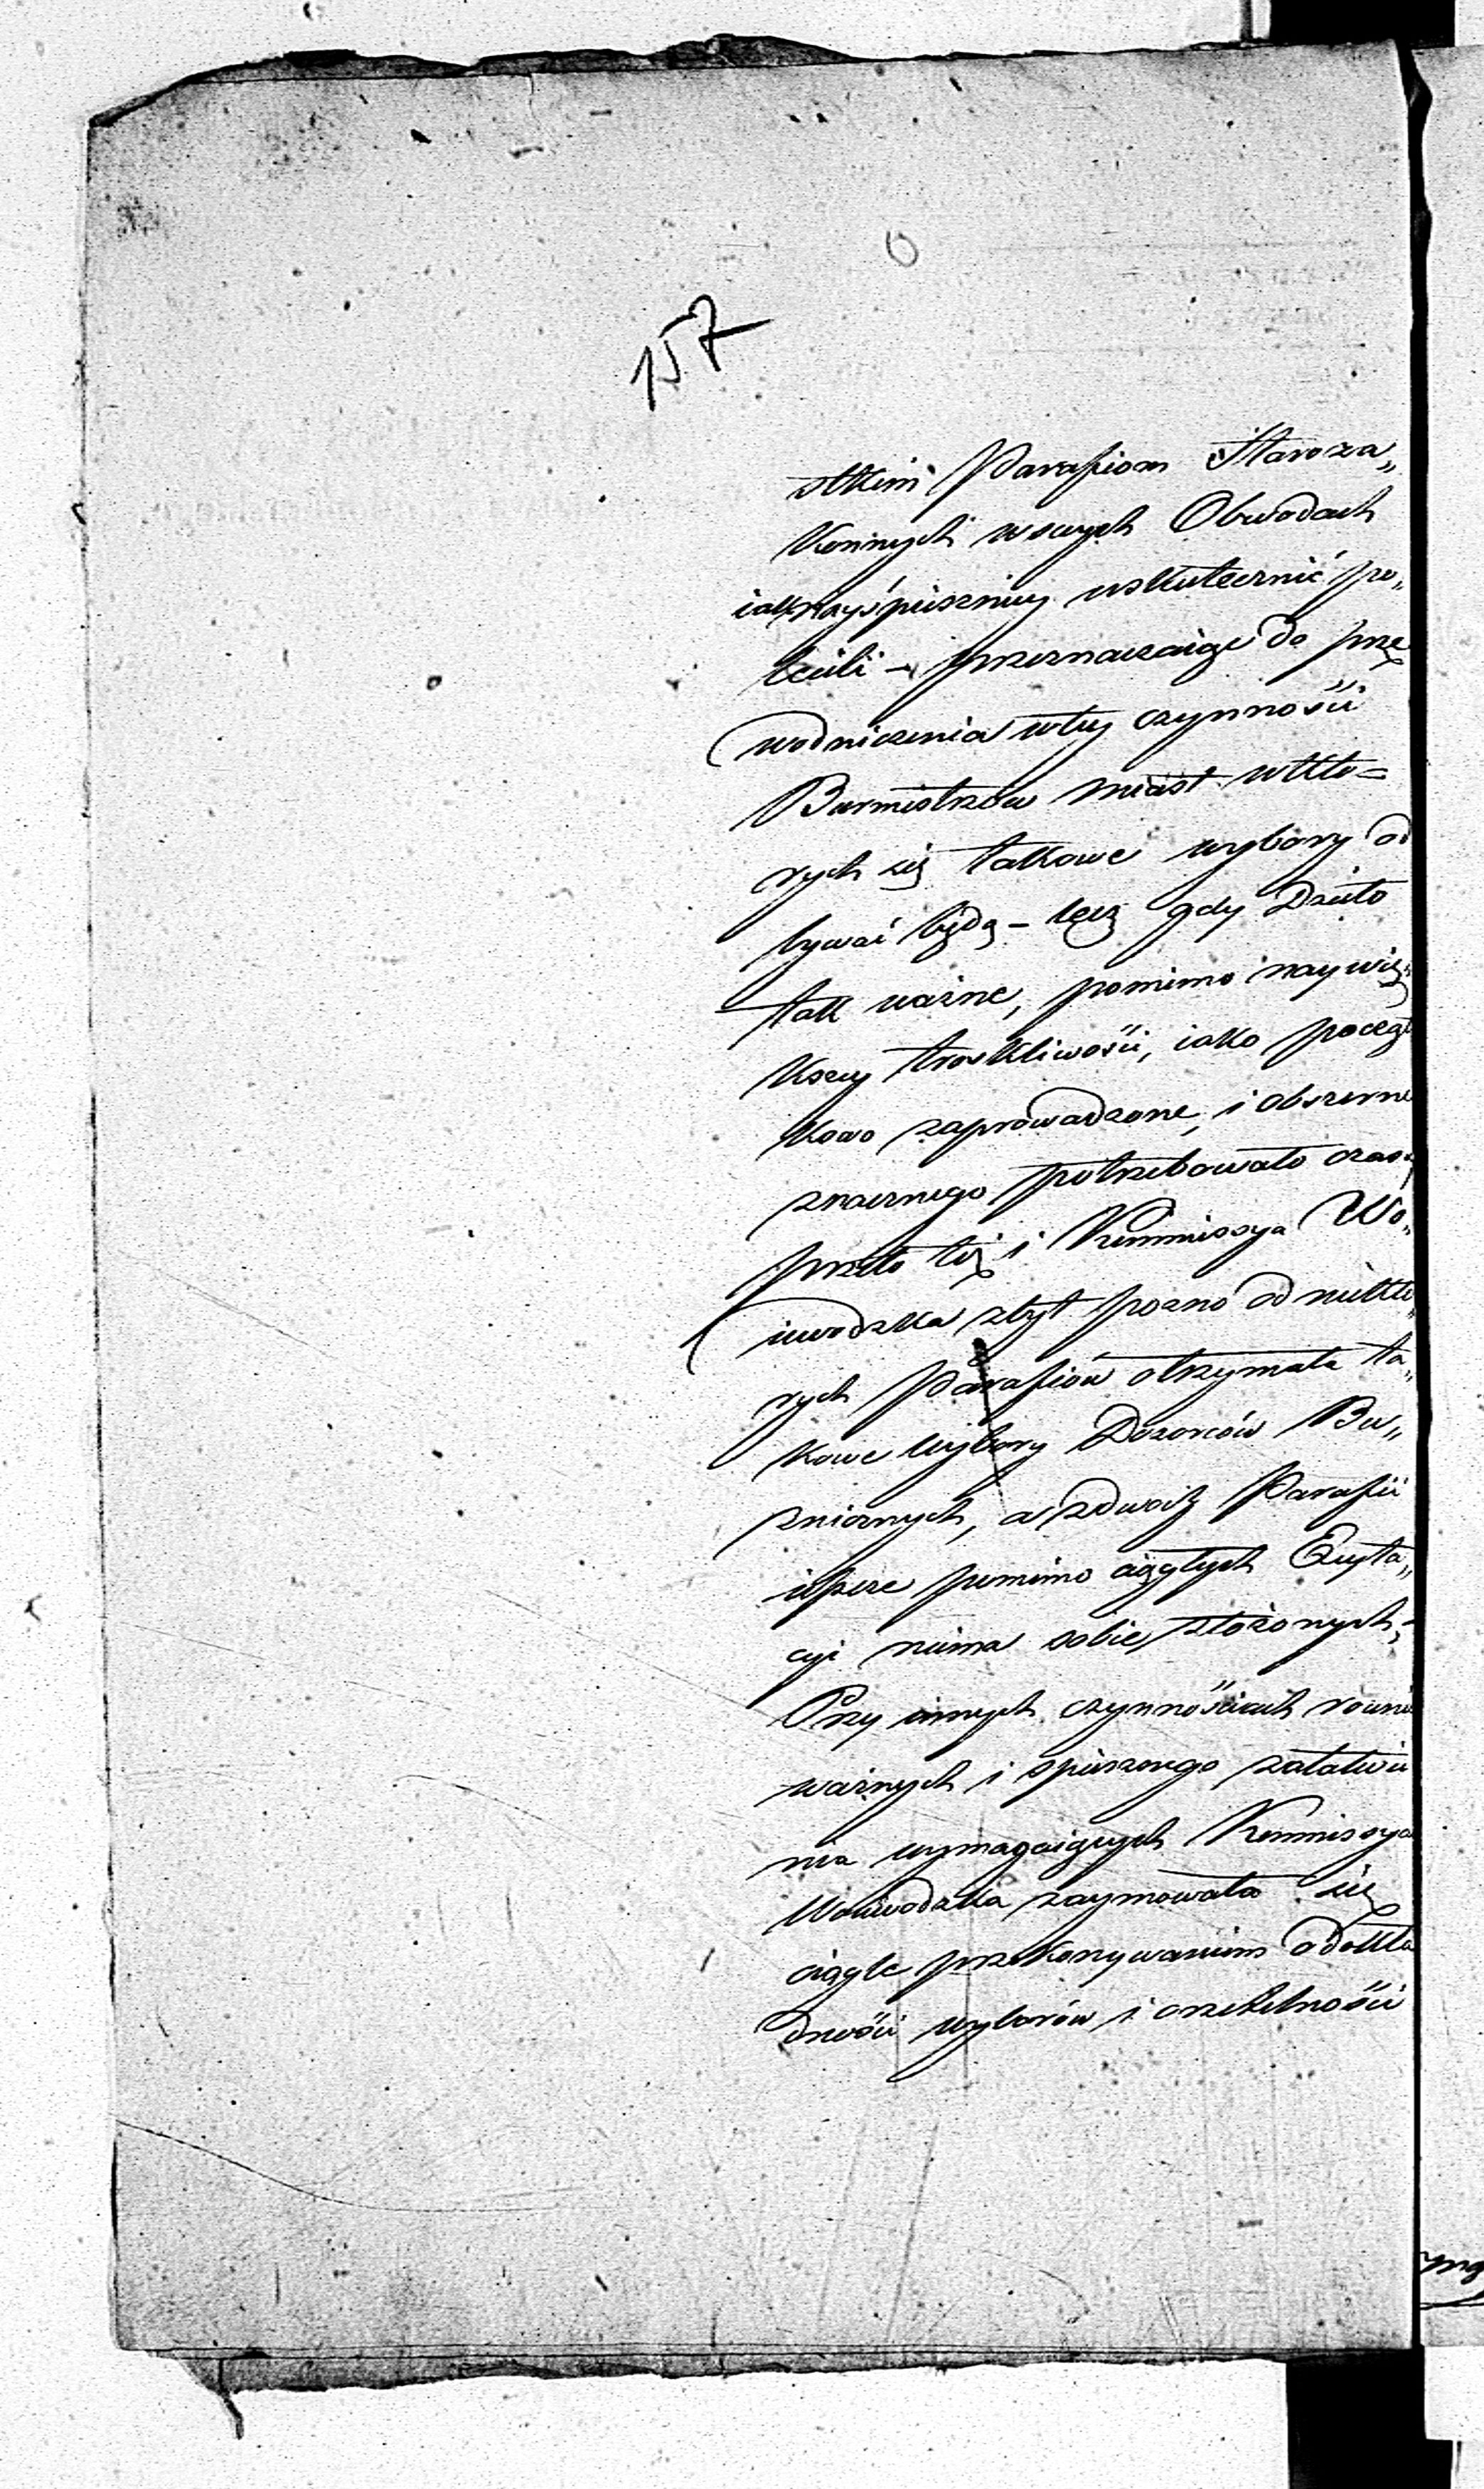 157
stkim Parafiom Staroza„
konnych w swych Obwodach
iaknayśpieszniey uskutecznić po„
lecili – przeznaczaiąc do prze
wodniczenia w tey czynności
Burmistrzów miast w któ=
rych się takowe wybory od
bywać będą – lecz gdy Dzieło
tak ważne, pomimo naywię„
kszey troskliwości, iako począt
kowo zaprowadzone, i obszerne
znacznego potrzebowało czasu
przeto też i Kommissya Wo„
iewodzka zbyt pozno od niektó„
rych Parafiów otrzymała ta„
kowe wybory Dozorców Bu„
żnicznych, a z dwóch Parafii
ieszcze pomimo ciągłych Excyta„
cyi niema sobie złożonych, –
Przy innych czynnościach rownie
ważnych i spiesznego załatwie
nia wymagaiących Kommissya
Woiewodzka zaymowała się
ciągle przekonywaniem o dokła
dności wyborów i rzetelności